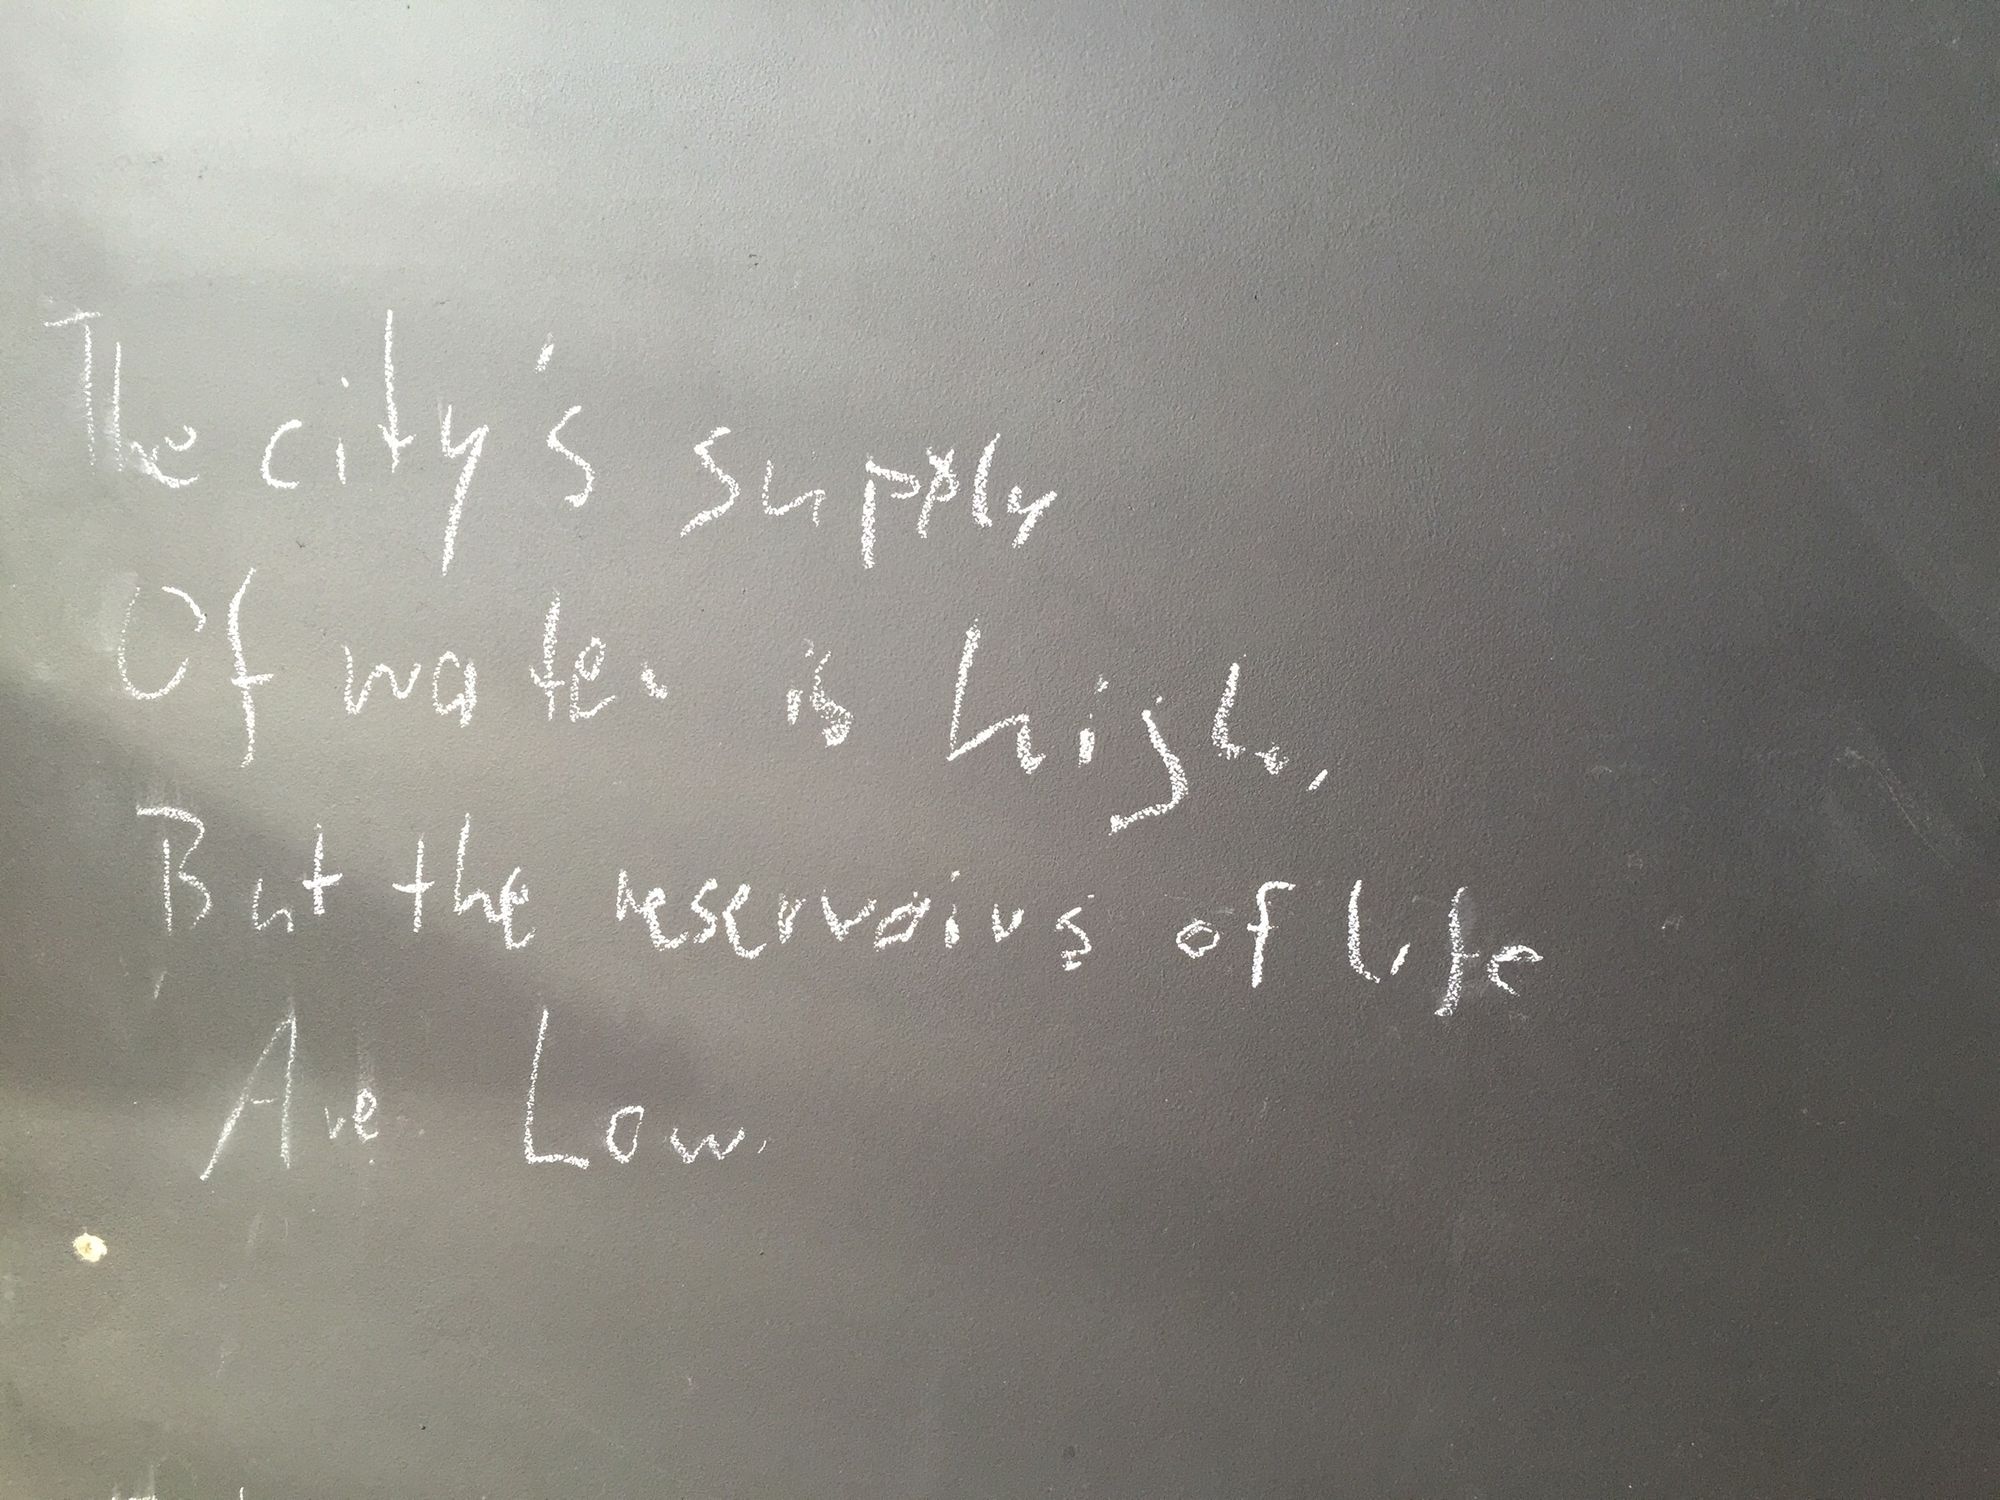 The city's supply
Of water is high,
But the reservoirs of life
Are Low.